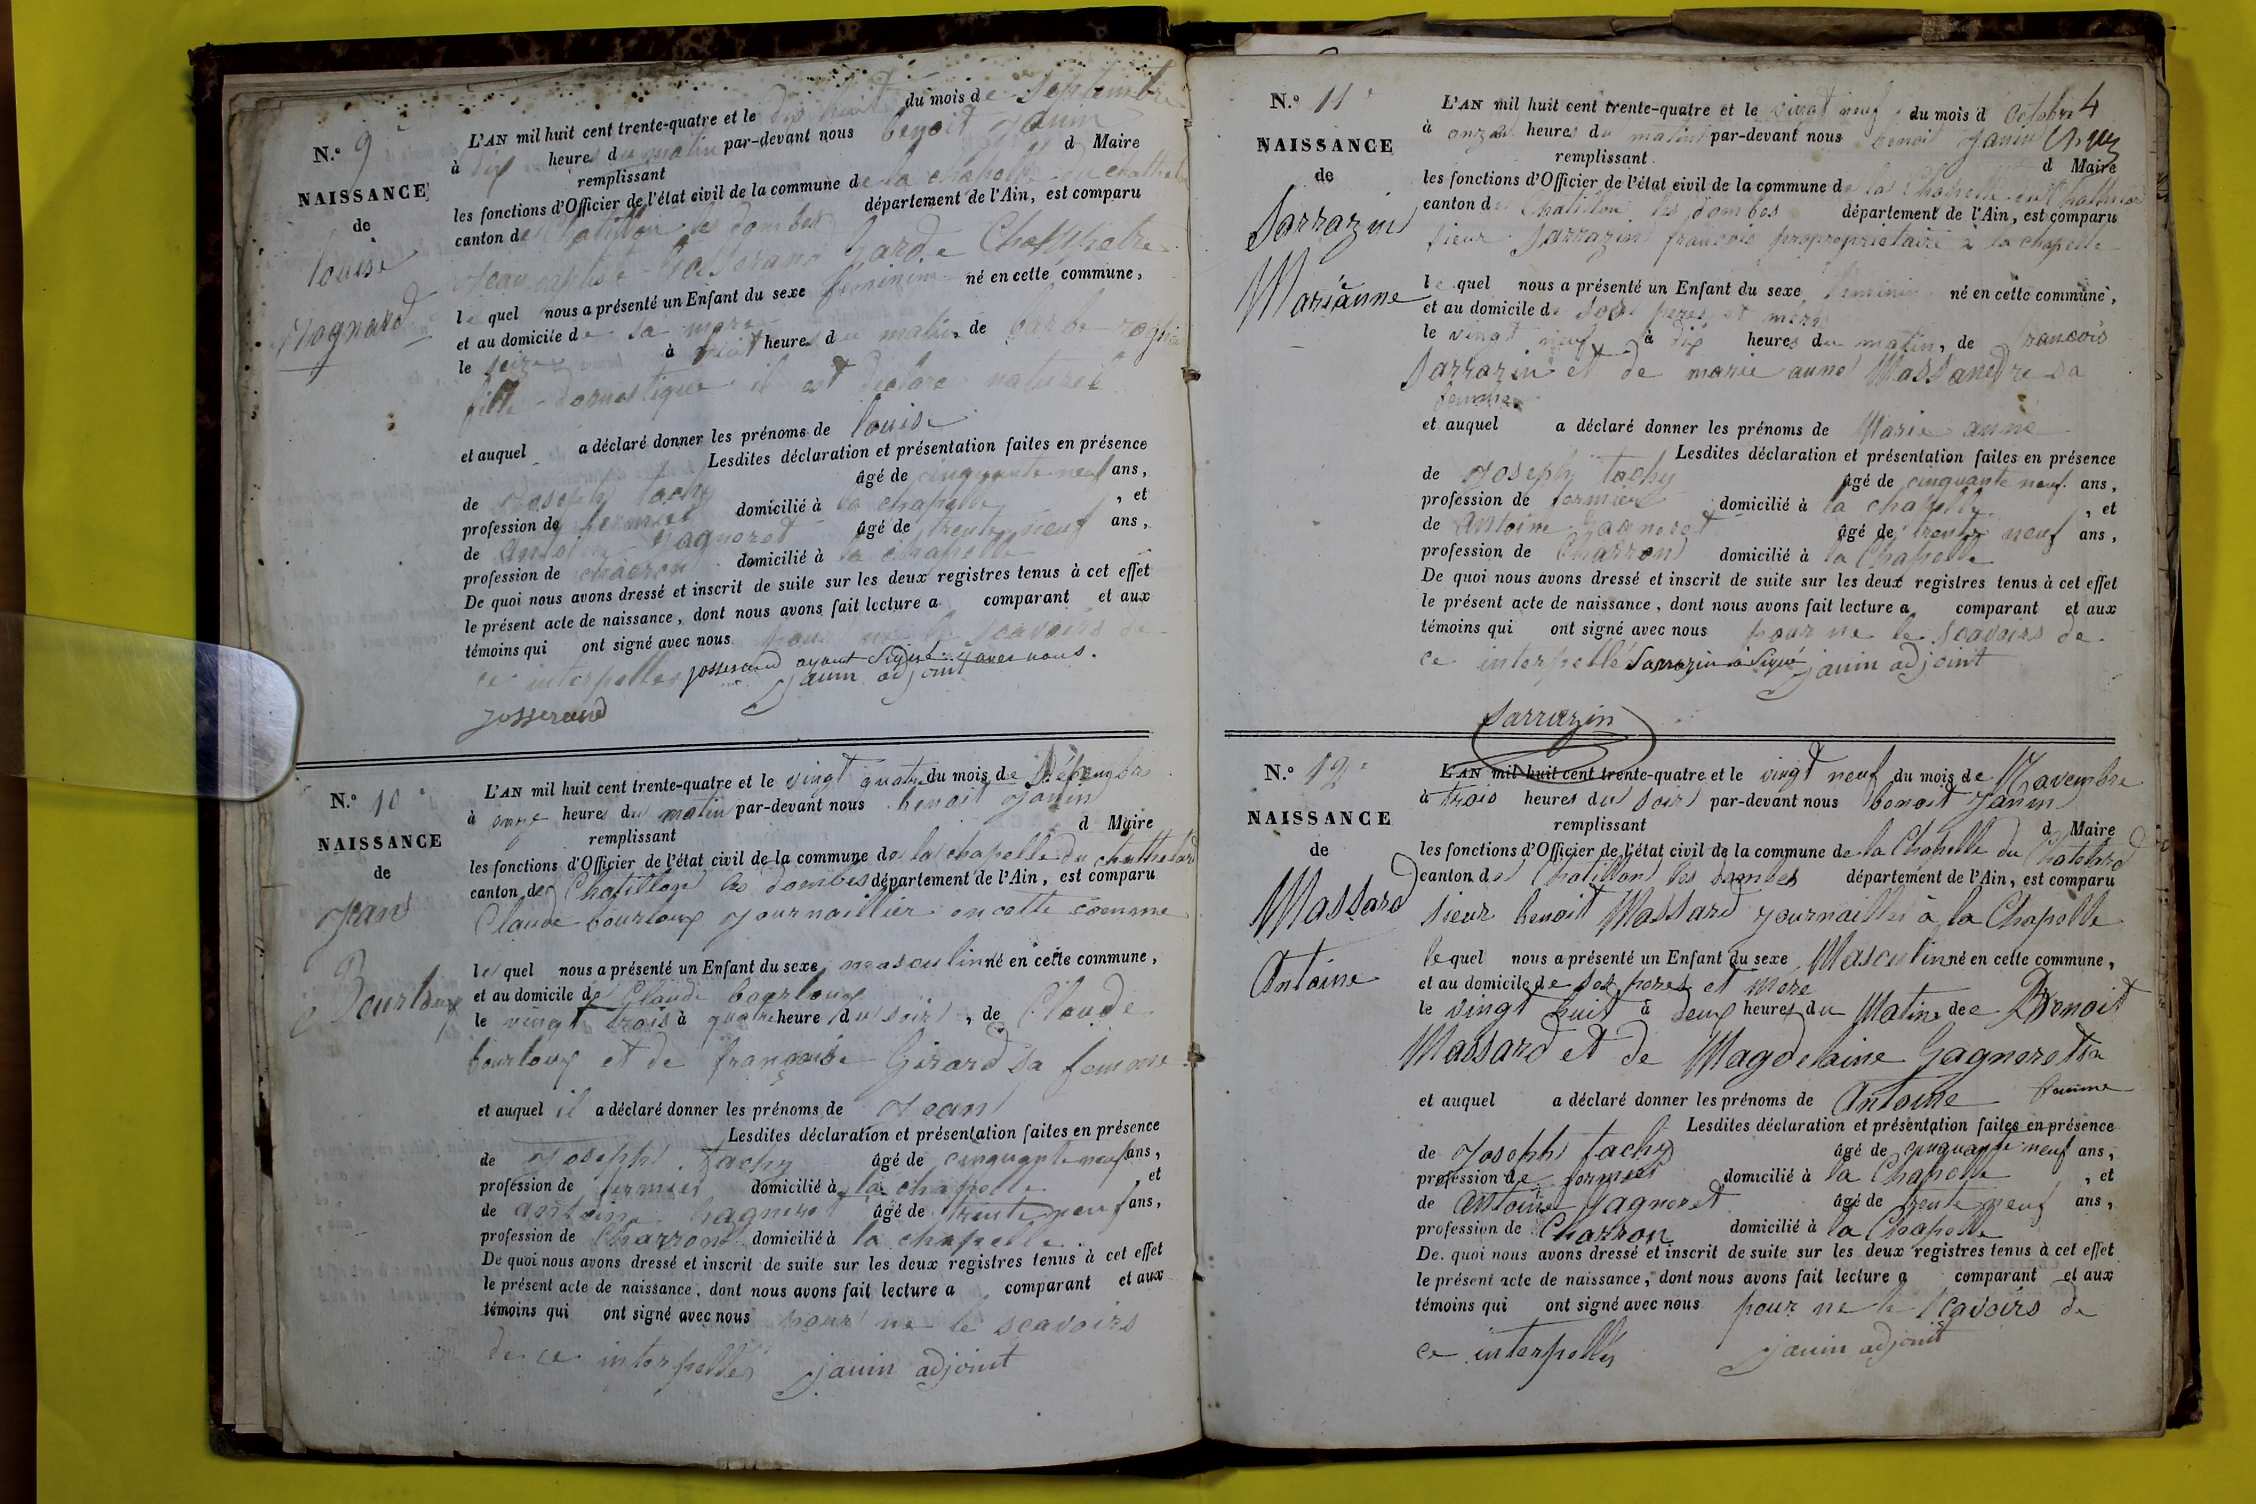 N.° 9
NAISSANCE
de
louise
L'AN mil huit cent trente-quatre et le dix huit du mois de Septembre
à dix heures du matin par-devant nous benoit Janin
remplissant d Maire
les fonctions d'Officier de l'état civil de la commune de la chapelle du
canton de Chatillon les dombes département de l'Ain, est comparu
Jean baptiste garde Champetre
le quel nous a présenté un Enfant du sexe feminin né en cette commune,
et au domicile de sa mere
le seize à huit heures du matin de
fille domestique il est déclaré naturel
et auquel a déclaré donner les prénoms de louise
Lesdites déclaration et présentation faites en présence
de Joseph tachy âgé de cinquante neuf ans,
profession de fermier domicilié à la chapelle , et
de antoine gagneret âgé de trente neuf ans,
profession de charron domicilié à la chapelle
De quoi nous avons dressé et inscrit de suite sur les deux registres tenus à cet effet
le présent acte de naissance, dont nous avons fait lecture a comparant et aux
témoins qui ont signé avec nous pour ne le scavoirs de
ce interpelles josserand ayant signé avec nous.
janin adjoint
josserand
N.° 10
NAISSANCE
de
Jean
Bourloux
L'AN mil huit cent trente-quatre et le vingt quatre du mois de
à onze heures du matin par-devant nous benoit Janin
remplissant d Maire
les fonctions d'Officier de l'état civil de la commune de la chapelle du chathelard
canton de Chatillon les dombes département de l'Ain, est comparu
Claude bourloux journaillier en cette comme
le quel nous a présenté un Enfant du sexe masculin né en cette commune,
et au domicile de Claude bourloux
le vingt trois à quatre heure du soir , de Claude
bourloux et de françoise Girard sa femme
et auquel il a déclaré donner les prénoms de Jean
Lesdites déclaration et présentation faites en présence
de Joseph tachy âgé de cinquante neuf ans,
profession de fermier domicilié à la chapelle , et
de antoine gagneret âgé de trente neuf ans,
profession de Charron domicilié à la chapelle
De quoi nous avons dressé et inscrit de suite sur les deux registres tenus à cet effet
le présent acte de naissance, dont nous avons fait lecture a comparant et aux
témoins qui ont signé avec nous pour ne le scavoirs
de ce interpellés janin adjoint
4
N.° 11
NAISSANCE
de
Sarrazin
Marianne
L'AN mil huit cent trente-quatre et le vingt neuf du mois d octobre
à onze heures du matin par-devant nous benoit Janin
remplissant d Maire
les fonctions d'Officier de l'état civil de la commune de la Chapelle du
canton de Chatillon les dombes département de l'Ain, est comparu
sieur Sarrazin francois propropriétaire a la chapelle
le quel nous a présenté un Enfant du sexe feminin né en cette commune,
et au domicile de ses peres et mere
le vingt neuf à dix heures du matin, de francois
Sarrazin et de marie anne sa
femme
et auquel a déclaré donner les prénoms de Marie anne
Lesdites déclaration et présentation faites en présence
de Joseph tachy âgé de cinquante neuf ans,
profession de fermier domicilié à la chapelle , et
de antoine gagneret âgé de trente neuf ans,
profession de Charron domicilié à la Chapelle
De quoi nous avons dressé et inscrit de suite sur les deux registres tenus à cet effet
le présent acte de naissance, dont nous avons fait lecture a comparant et aux
témoins qui ont signé avec nous pour ne le scavoirs de
ce interpellé Sarrazin a signé janin adjoint
Sarrazin
N.° 12
NAISSANCE
de
Massard
Antoine
L'AN mil huit cent trente-quatre et le vingt neuf du mois de Navembre
à trois heures du soir par-devant nous benoit Janin
remplissant d Maire
les fonctions d'Officier de l'état civil de la commune de la Chapelle du Chatelard
canton de Chatillon les dombes département de l'Ain, est comparu
sieur benoit Massard journaillier à la Chapelle
le quel nous a présenté un Enfant du sexe Masculin né en cette commune,
et au domicile de ses peres et mere
le vingt huit à deux heures du Matin de Benoit
Massard et de Magdelaine Gagneret sa
femme
et auquel a déclaré donner les prénoms de Antoine
Lesdites déclaration et présentation faites en présence
de Joseph tachy âgé de cinquante neuf ans,
profession de fermier domicilié à la Chapelle , et
de antoine gagneret âgé de trente neuf ans,
profession de Charron domicilié à la Chapelle
De quoi nous avons dressé et inscrit de suite sur les deux registres tenus à cet effet
le présent acte de naissance, dont nous avons fait lecture a comparant et aux
témoins qui ont signé avec nous pour ne le scavoirs de
ce interpellés janin adjoint